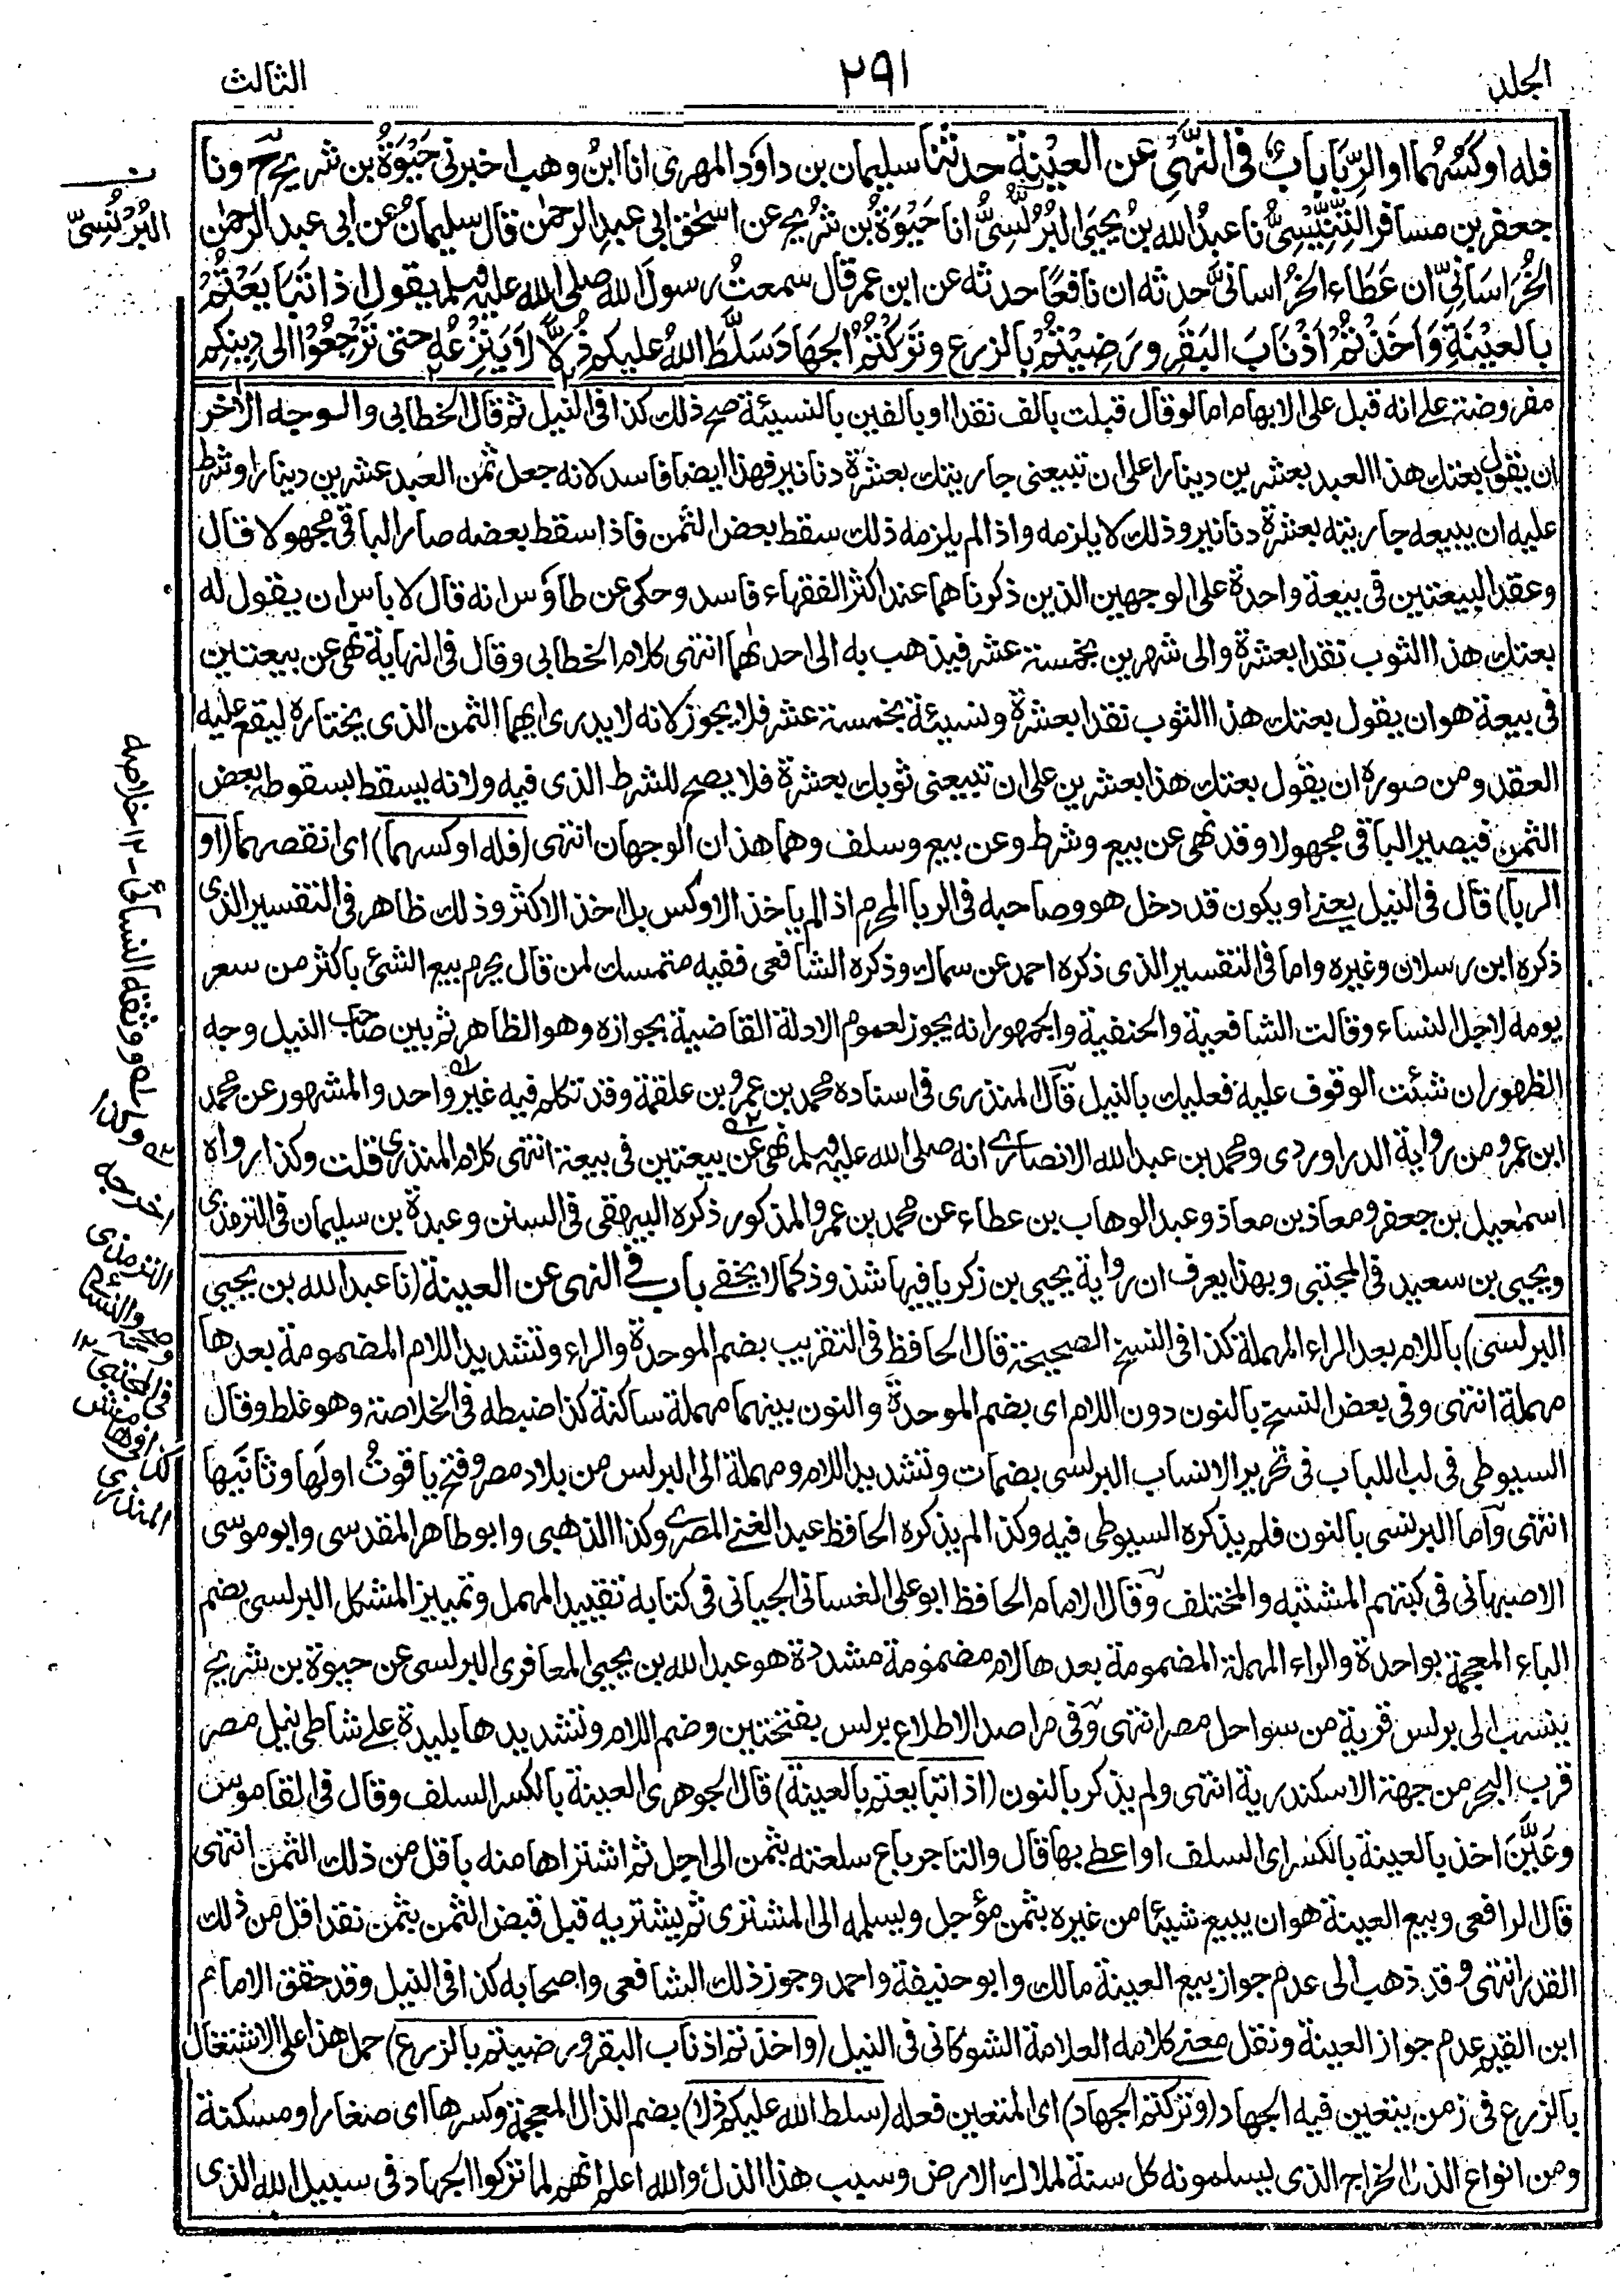 الجلد
٢٩١
الثالث
فله اوكَسُهُما او الرِّبَا بابٌ فی النَّهْیِ عن العِيْنة حدثنا سليمان بن داوٗد المهری انا ابنُ وهب اخبرنی حَيْوَةُ بن شريح ح ونا
جعفر بن مسافر التِّنِّيْسِیُّ نا عبدُ الله بنُ يحيَی البُرُلُّسِیُّ انا حَيْوَةُ بن شُريح عن اسحٰق ابی عبدِ الرحمٰن قال سليمانُ عن ابی عبد الرحمٰن
الخُرَاسَانِیِّ ان عَطَاء الخُراسانیَّ حدثه ان نافعًا حدثه عن ابن عمر قال سمعتُ رسولَ الله صلی الله عليه وسلم يقول اذا تَبَايَعْتُمْ
بِالعِيْنَةِ وَاَخَذْتُمْ اَذْنَابَ البَقَرِ ورَضِيْتُمْ بالزرع وتَرَكْتُمُ الجِهَادَ سَلَّطَ اللهُ عليكم ذُلًّا لاَ يَنْزِعُه حتی تَرْجِعُوْا الی دِينِكم
مفروضة علی انه قبل علی الابهام اما لو قال قبلت بالف نقدا او بالفين بالنسيئة صح ذلك كذا فی النيل ثم قال الخطابی والوجه الاٰخر
ان يقول بعتك هذا العبد بعشرين دينارا علی ان تبيعنی جاريتك بعشرة دنانير فهذا ايضا فاسد لانه جعل ثمن العبد عشرين دينارا وشرط
عليه ان يبيعه جاريته بعشرة دنانير وذلك لا يلزمه واذا لم يلزمه ذلك سقط بعض الثمن فاذا سقط بعضه صار الباقی مجهولا قال
وعقد البيعتين فی بيعة واحدة علی الوجهين الذين ذكرناهما عند اكثر الفقهاء فاسد وحكی عن طاوٗس انه قال لا باس ان يقول له
بعتك هذا الثوب نقدا بعشرة والی شهرين بخمسة عشر فيذهب به الی احدٰهما انتهی كلام الخطابی وقال فی النهاية نهی عن بيعتين
فی بيعة هو ان يقول بعتك هذا الثوب نقدا بعشرة ونسيئة بخمسة عشر فلا يجوز لانه لا يدری ايهما الثمن الذی يختاره ليقع عليه
العقد ومن صوره ان يقول بعتك هذا بعشرين علی ان تبيعنی ثوبك بعشرة فلا يصح للشرط الذی فيه ولانه يسقط بسقوطه بعض
الثمن فيصير الباقی مجهولا وقد نهی عن بيع وشرط وعن بيع وسلف وهما هذان الوجهان انتهی (فله اوكسهما) ای انقصهما (او
الربا) قال فی النيل يعنی او يكون قد دخل هو وصاحبه فی الربا المحرم اذا لم ياخذ الاوكس بل اخذ الاكثر وذلك ظاهر فی التفسير الذی
ذكره ابن رسلان وغيره واما فی التفسير الذی ذكره احمد عن سماك وذكره الشافعی ففيه متمسك لمن قال يحرم بيع الشئ باكثر من سعر
يومه لاجل النساء وقالت الشافعية والحنفية والجمهور انه يجوز لعموم الادلة القاضية بجوازه وهو الظاهر ثم بين صاحب النيل وجه
الظهور ان شئت الوقوف عليه فعليك بالنيل قال المنذری فی اسناده محمد بن عمرو بن علقمة وقد تكلم فيه غير واحد والمشهور عن محمد
ابن عمرو من رواية الدراوردی ومحمد بن عبد الله الانصاری انه صلی الله عليه وسلم نهی عن بيعتين فی بيعة انتهی كلام المنذری قلت وكذا رواه
اسمٰعيل بن جعفر ومعاذ بن معاذ وعبد الوهاب بن عطاء عن محمد بن عمرو المذكور ذكره البيهقی فی السنن وعبدة بن سليمان فی الترمذی
ويحيی بن سعيد فی المجتبی وبهذا يعرف ان رواية يحيی بن زكريا فيها شذوذ كما لا يخفی باب فی النهی عن العينة (نا عبد الله بن يحيی
البرلسی) باللام بعد الراء المهملة كذا فی النسخ الصحيحة قال الحافظ فی التقريب بضم الموحدة والراء وتشديد اللام المضمومة بعدها
مهملة انتهی وفی بعض النسخ بالنون دون اللام ای بضم الموحدة والنون بينهما مهملة ساكنة كذا ضبطه فی الخلاصة وهو غلط وقال
السيوطی فی لب اللباب فی تحرير الانساب البرلسی بضمات وتشديد اللام ومهملة الی البرلس من بلاد مصر وفتح ياقوتُ اولَها وثانيَها
انتهی واما البرنسی بالنون فلم يذكره السيوطی فيه وكذا لم يذكره الحافظ عبد الغنی المصری وكذا الذهبی وابو طاهر المقدسی وابو موسی
الاصبهانی فی كتبهم المشتبه والمختلف وقال الامام الحافظ ابو علی الغسانی الجيانی فی كتابه تقييد المهمل وتمييز المشكل البرلسی بضم
الباء المعجمة بواحدة والراء المهملة المضمومة بعدها لام مضمومة مشددة هو عبد الله بن يحيی المعافری البرلسی عن حيوة بن شريح
ينسب الی برلس قرية من سواحل مصر انتهی وفی مراصد الاطلاع برلس بفتحتين وضم اللام وتشديدها بليدة علی شاطی نيل مصر
قرب البحر من جهة الاسكندرية انتهی ولم يذكر بالنون (اذا تبايعتم بالعينة) قال الجوهری العينة بالكسر السلف وقال فی القاموس
وعَيَّنَ اخذ بالعينة بالكسر ای السلف او اعطی بها قال والتاجر باع سلعته بثمن الی اجل ثم اشتراها منه باقل من ذلك الثمن انتهی
قال الرافعی وبيع العينة هو ان يبيع شيئا من غيره بثمن مؤجل ويسلمه الی المشتری ثم يشتريه قبل قبض الثمن بثمن نقد اقل من ذلك
القدر انتهی وقد ذهب الی عدم جواز بيع العينة مالك وابو حنيفة واحمد وجوز ذلك الشافعی واصحابه كذا فی النيل وقد حقق الامام
ابن القيم عدم جواز العينة ونقل معنی كلامه العلامة الشوكانی فی النيل (واخذتم اذناب البقر ورضيتم بالزرع) حمل هذا علی الاشتغال
بالزرع فی زمن يتعين فيه الجهاد (وتركتم الجهاد) ای المتعين فعله (سلط الله عليكم ذلا) بضم الذال المعجمة وكسرها ای صغارا ومسكنة
ومن انواع الذل الخراج الذی يسلمونه كل سنة لملاك الارض وسبب هذا الذل والله اعلم انهم لما تركوا الجهاد فی سبيل الله الذی
ن
البُرْنُسِیّ
ووثقه النسائی - ١٢ خلاصه
وكذا
اخرجه
الترمذی
وصححه والنسائی
فی المجتبی ١٢
كذا فی هامش
المنذری